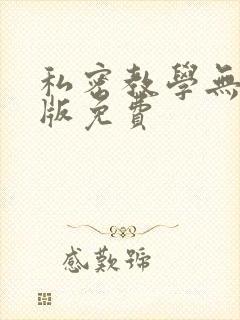 私密教學無
版免費
感歎號